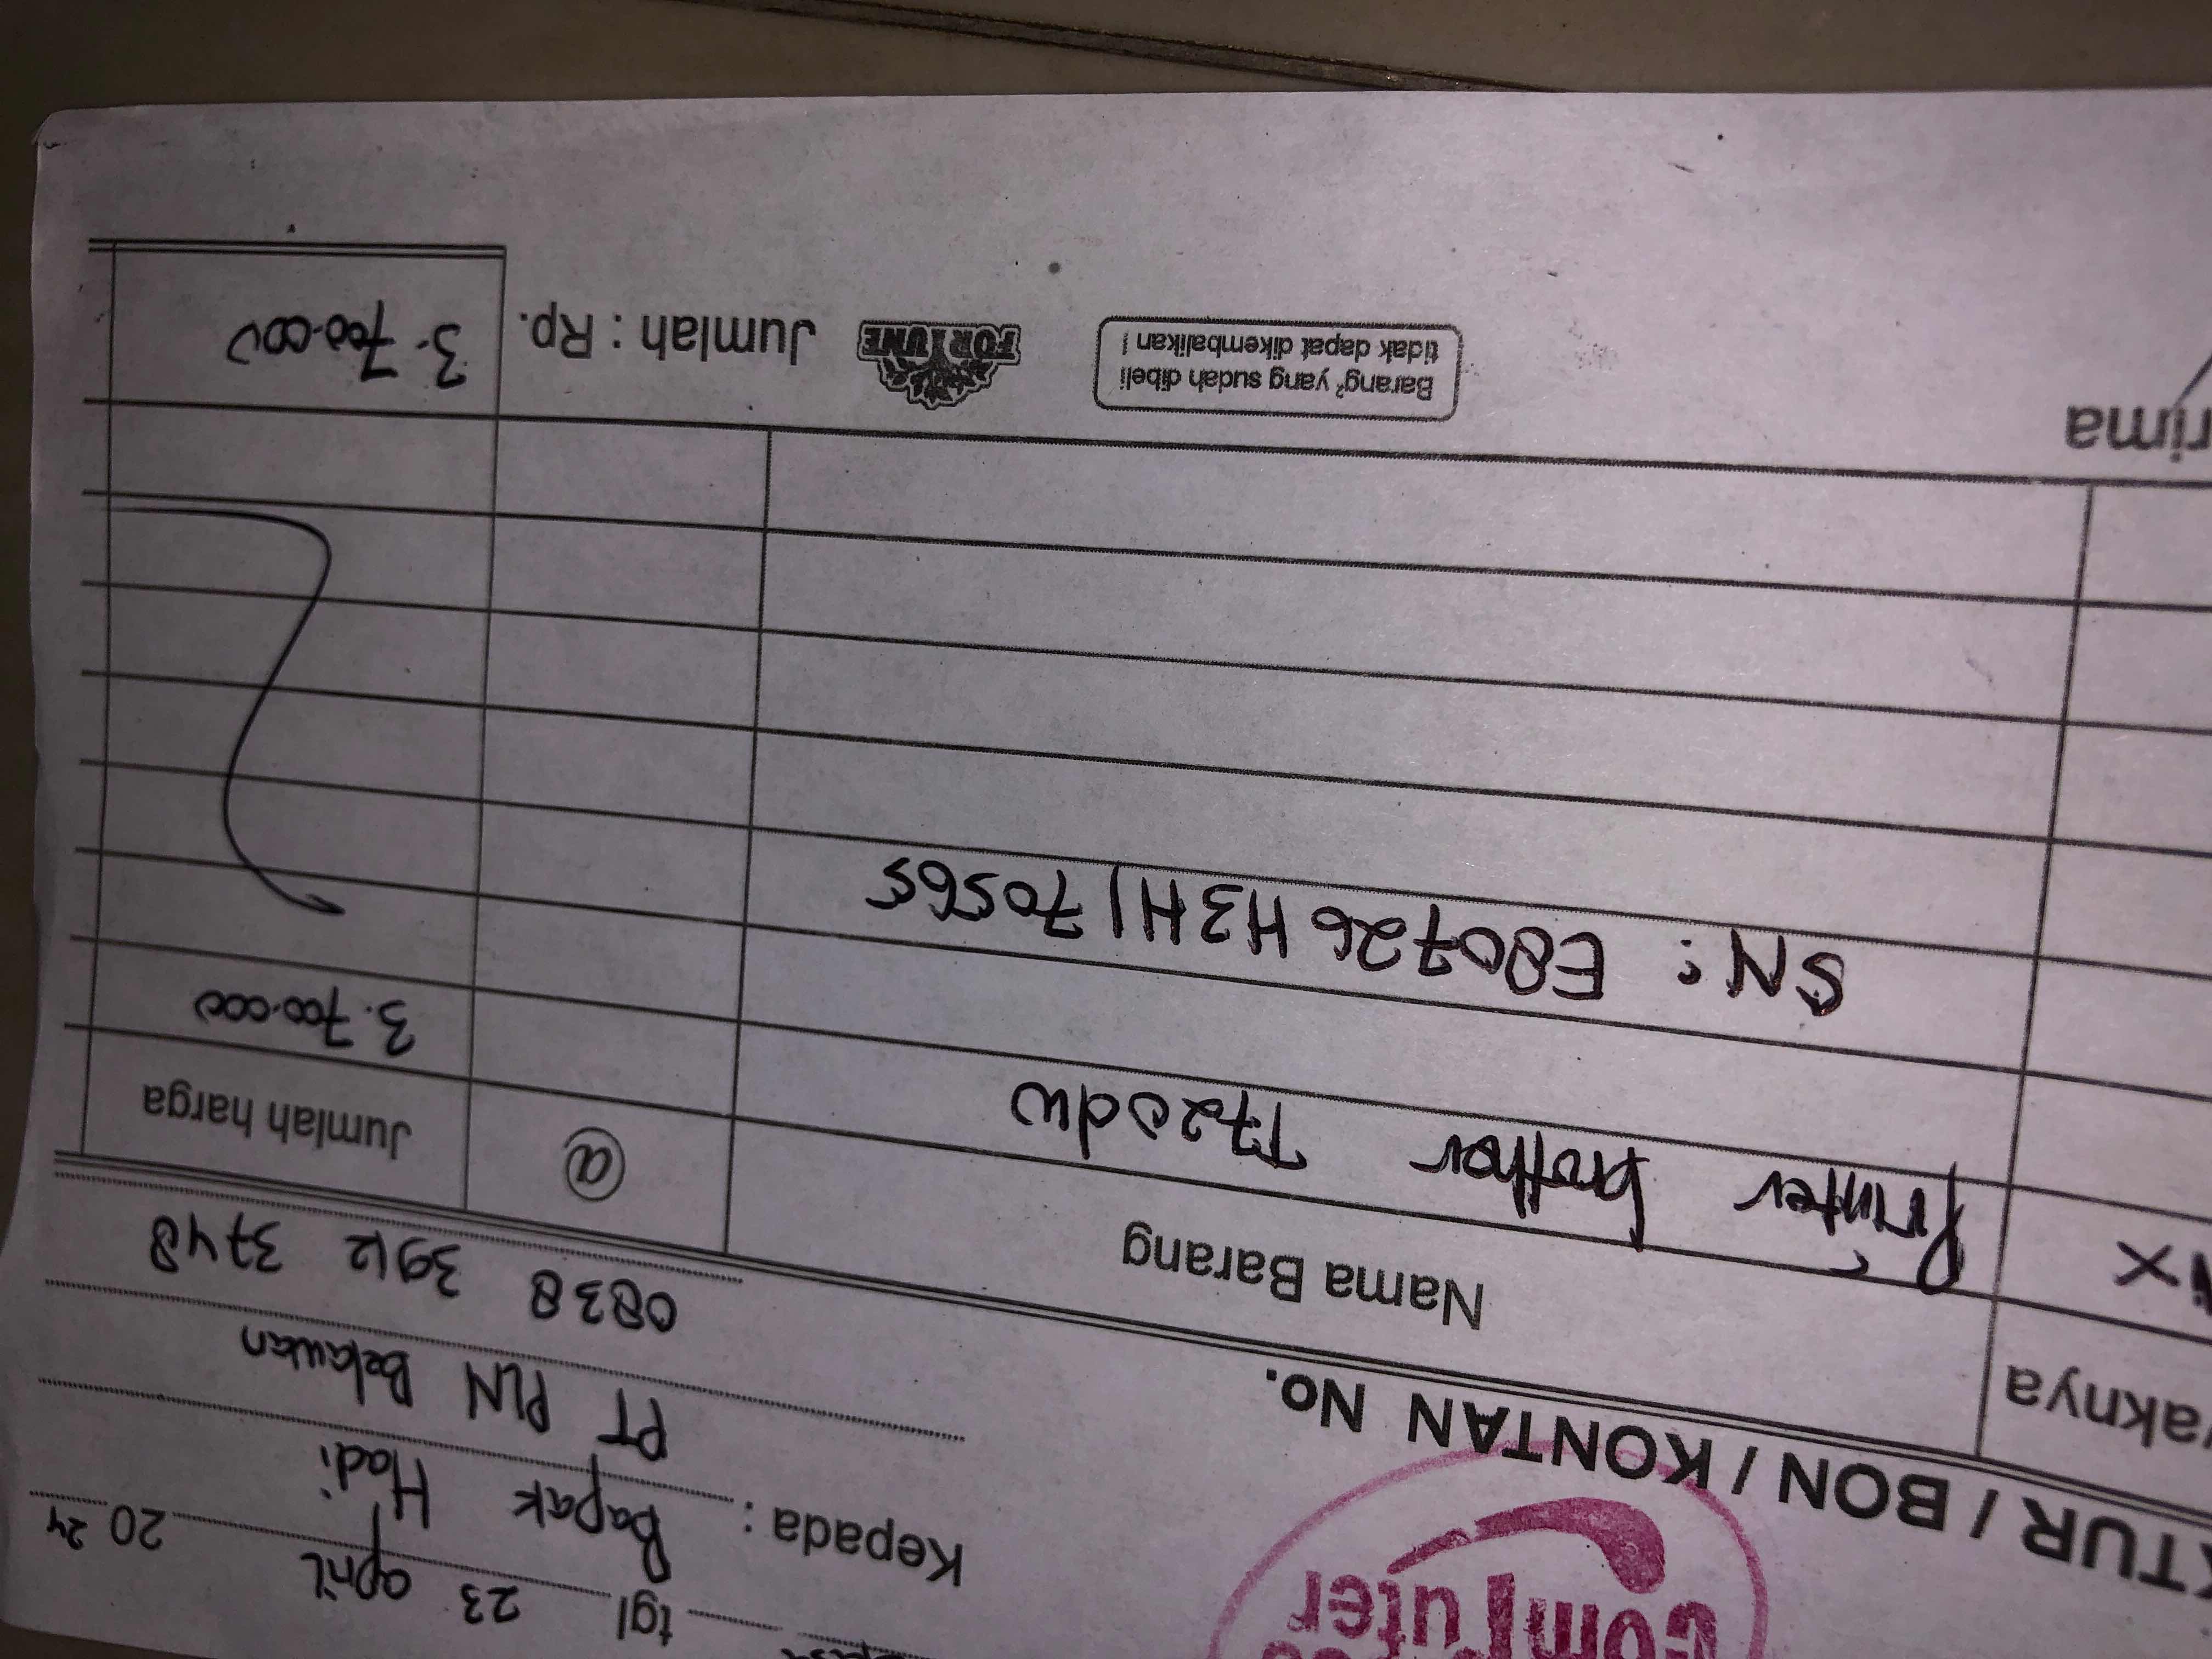 tgl 23 april 20 24
Kepada : Bapak Hadi
PT PLN Belawan
0838 3912 3748
Computer
KTUR / BON / KONTAN No.
aknya Nama Barang @ Jumlah harga
Printer brother T720dw 3.700.000
SN: E80726H3H170565
rima Barang² yang sudah dibeli
tidak dapat dikembalikan !
FORTUNE
Jumlah : Rp. 3.700.000